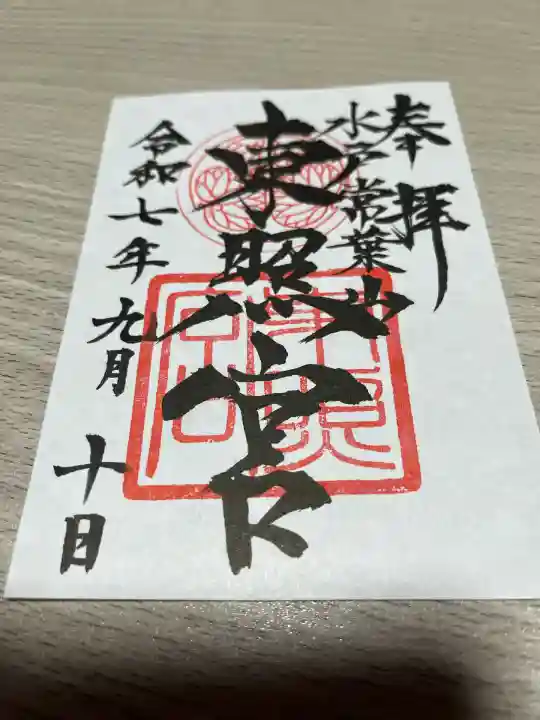 奉拝
水戸常葉山
東照宮
令和七年九月十日